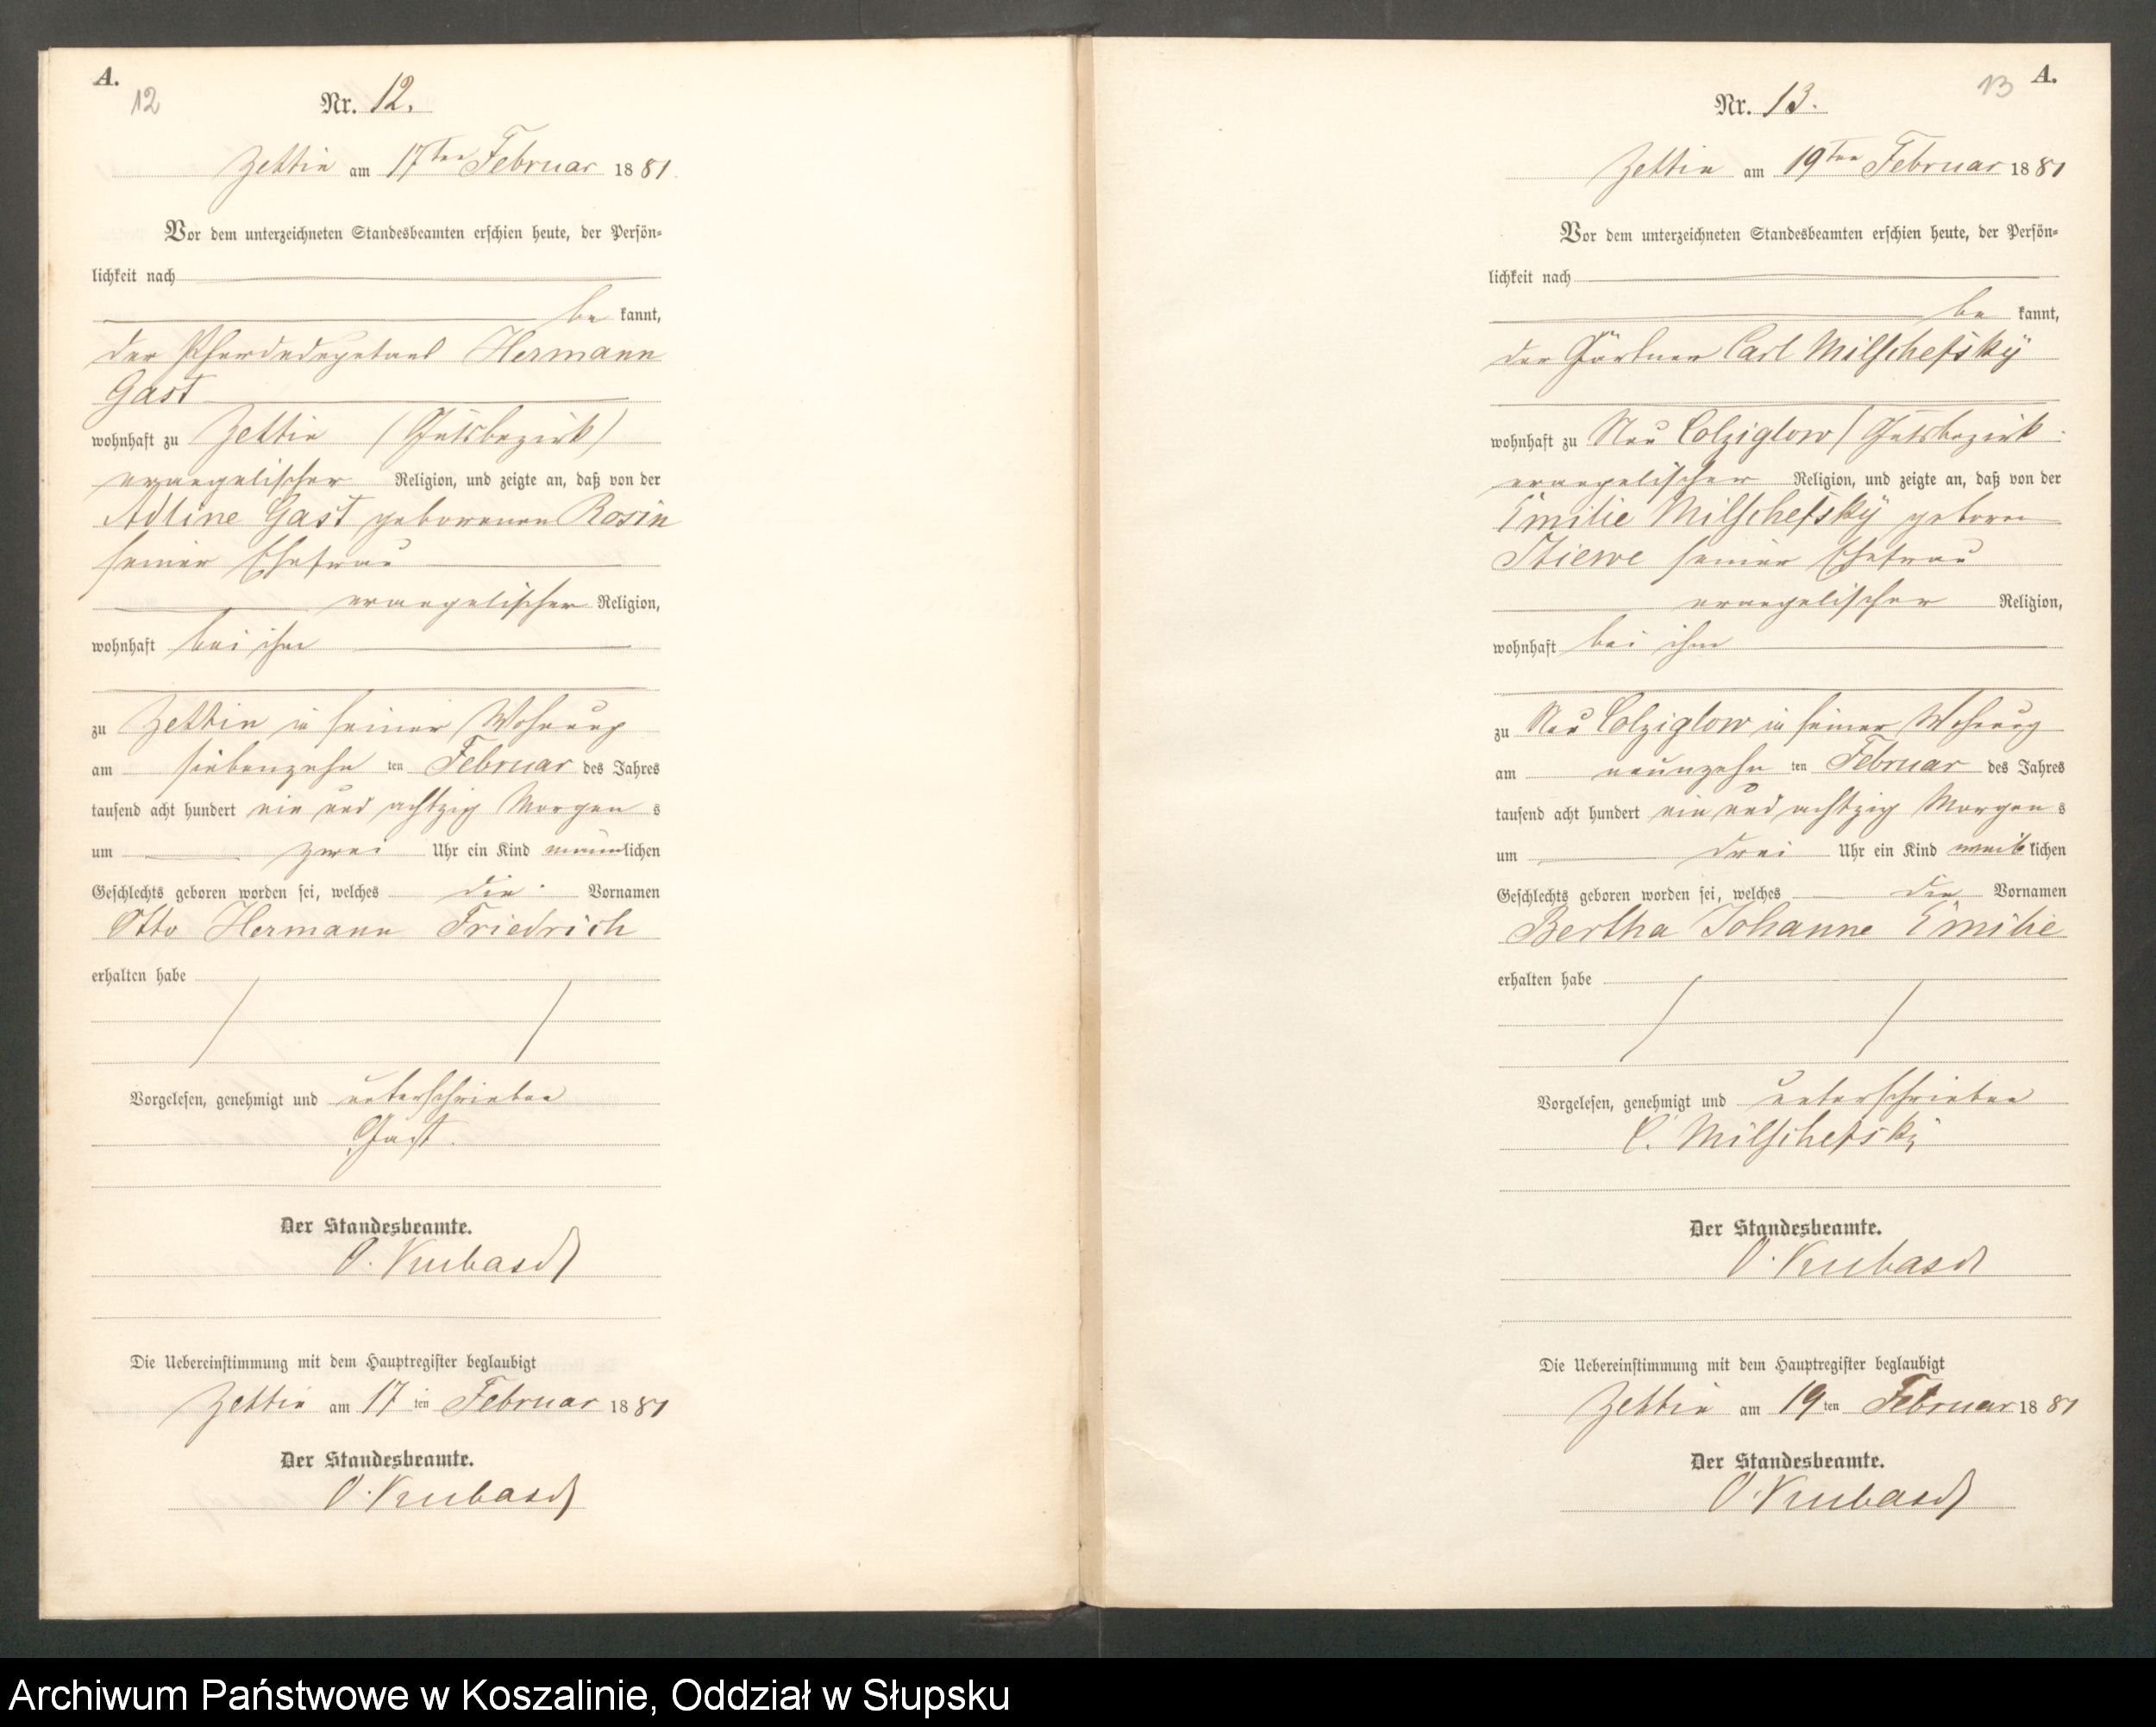 A.
12
Nr. 12.
Zettin am 17ten Februar 1881.
Vor dem unterzeichneten Standesbeamten erschien heute, der Persön-
lichkeit nach
be kannt,
der Hermann
Gast
wohnhaft zu Zettin (Gutsbezirk)
evangelischer Religion, und zeigte an, daß von der
Adline Gast geborenen Rosin
seiner Ehefrau
evangelischer Religion,
wohnhaft bei ihm
zu Zettin in seiner Wohnung
am siebenzehn ten Februar des Jahres
tausend acht hundert ein und achtzig Morgen s
um zwei Uhr ein Kind männlichen
Geschlechts geboren worden sei, welches die Vornamen
Otto Hermann Friedrich
erhalten habe
Vorgelesen, genehmigt und unterschrieben
Gast.
Der Standesbeamte.
O. Kubasch
Die Uebereinstimmung mit dem Hauptregister beglaubigt
Zettin am 17 ten Februar 1881
Der Standesbeamte.
O. Kubasch
13
A.
Nr. 13.
Zettin am 19ten Februar 1881
Vor dem unterzeichneten Standesbeamten erschien heute, der Persön-
lichkeit nach
be kannt,
der Gärtner Carl Milschefsky
wohnhaft zu Neu Colziglow (Gutsbezirk
evangelischer Religion, und zeigte an, daß von der
Emilie Milschefsky geboren
Stiewe seiner Ehefrau
evangelischer Religion,
wohnhaft bei ihm
zu Neu Colziglow in seiner Wohnung
am neunzehn ten Februar des Jahres
tausend acht hundert ein und achtzig Morgen s
um drei Uhr ein Kind weiblichen
Geschlechts geboren worden sei, welches die Vornamen
Bertha Johanne Emilie
erhalten habe
Vorgelesen, genehmigt und unterschrieben
C. Milschefsky
Der Standesbeamte.
O. Kubasch
Die Uebereinstimmung mit dem Hauptregister beglaubigt
Zettin am 19 ten Februar 1881
Der Standesbeamte.
O. Kubasch
Archiwum Państwowe w Koszalinie, Oddział w Słupsku